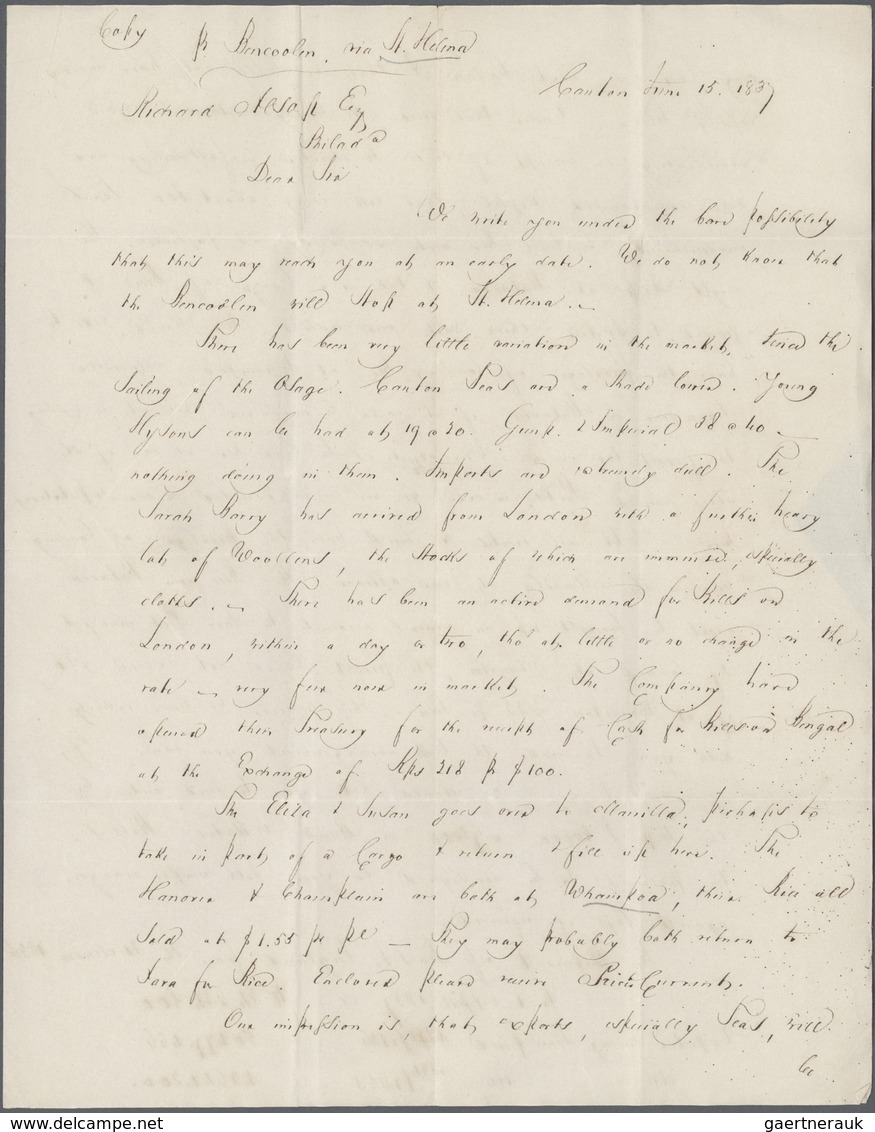 Copy
pr Bencoolen, via St. Helena
Canton June 15. 1837
Richard Alsop Esq
Philada
Dear Sir
We write you under the bare possibility
that this may reach you at an early date. We do not know that
the Bencoolen will stop at St. Helena. —
There has been very little variation in the market, since the
Sailing of the Osage. Canton Teas are a shade lower. Young
Hysons can be had at 19 @ 20. Gunp. & Imperial 38 @ 40 —
nothing doing in them. Imports are extremely dull. The
Sarah Barry has arrived from London with a further heavy
lot of Woollens, the Stocks of which are immense, especially
cloths. — There has been an active demand for Bills on
London, within a day or two, tho' at little or no change in the
rate — very few now in market. The Company have
opened their Treasury for the receipt of Cash for Bills on Bengal
at the Exchange of Rps 218 pr $100.
The Eliza & Susan goes over to Manilla, perhaps to
take in part of a Cargo & return & fill up here. The
Hanover & Champlain are both at Whampoa, their Rice all
Sold at $1.55 pr pl — They may probably both return to
Java for Rice. Enclosed please receive Prices Current.
Our impression is, that exports, especially Teas, will
be
gaertnerauk